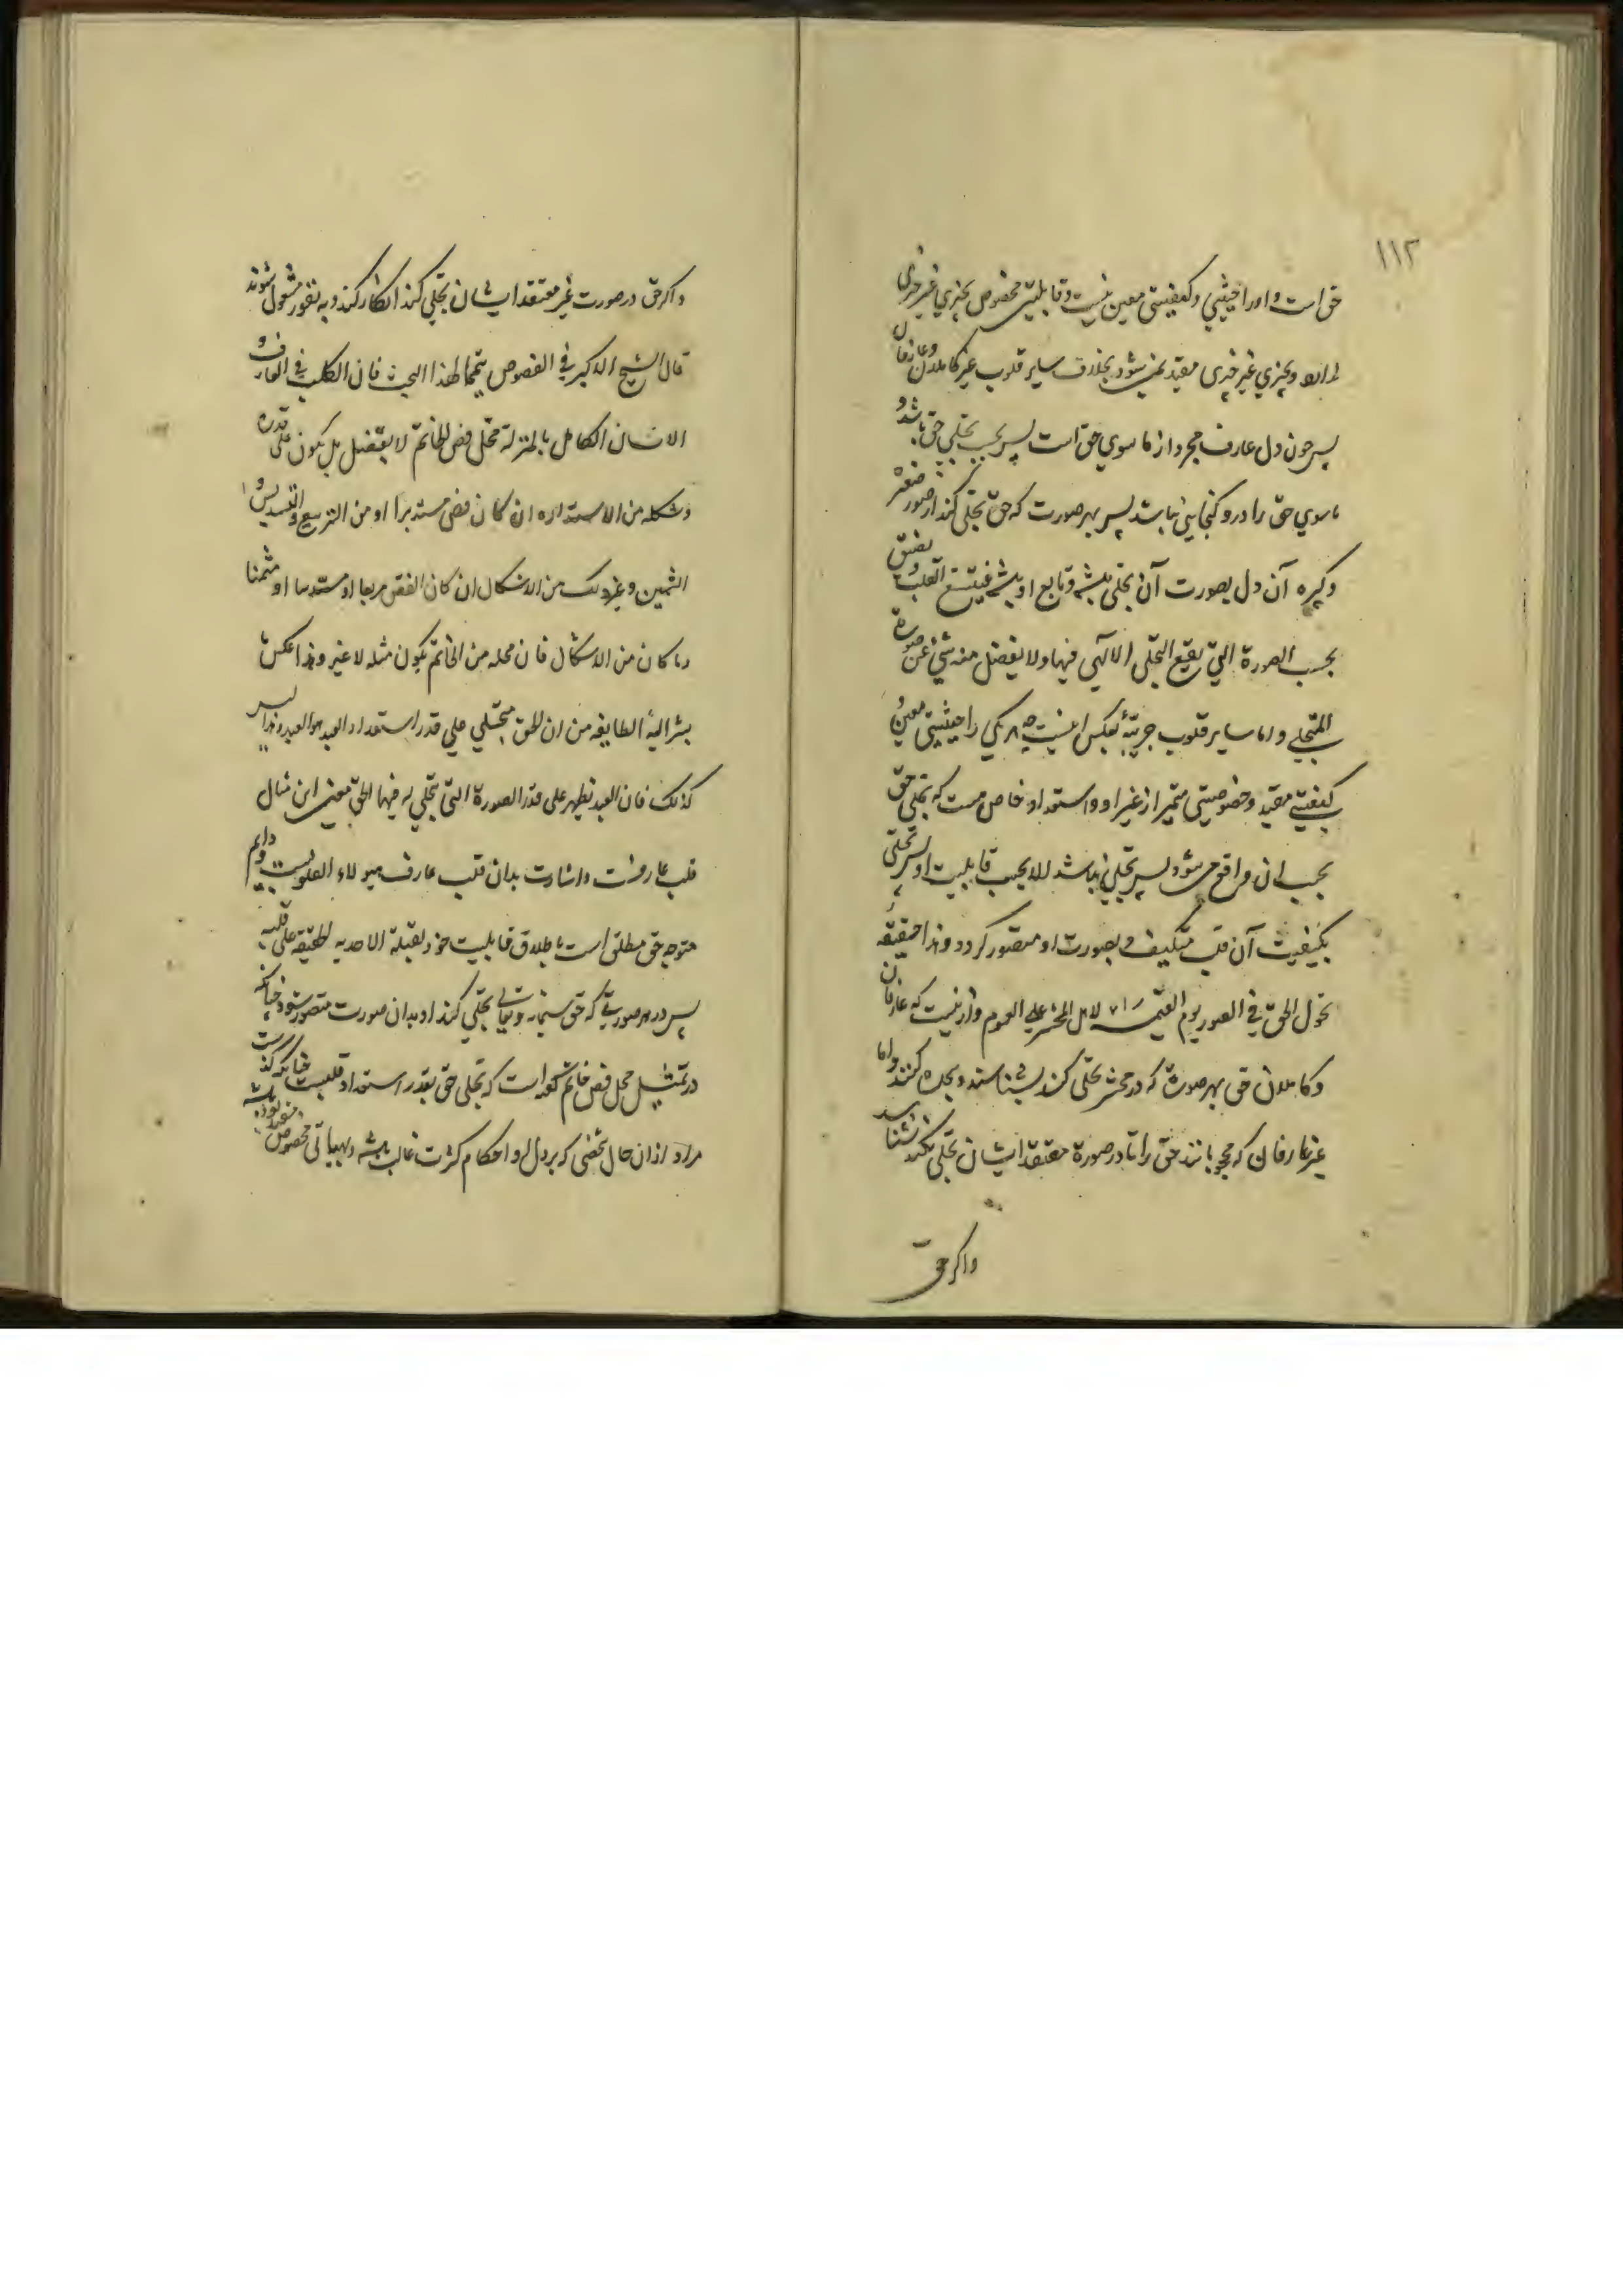 ١١٢
حق است و او را حیثیتی و کیفیتی معین نیست و قابلیتی مخصوص بچیزی غیر چیزی
و بچیزی غیر چیزی مقید نمی شود بخلاف سایر قلوب غیر کاملان و عارفان
پس چون دل عارف مجرد از ما سوی حق است پس بحسب تجلی حق باشد و
ما سوی حق را درو گنجایی نباشد پس بهر صورت که حق تجلی کند از صور
وکیره آن دل بصورت آن تجلی باشد و تابع او باشد فیتسع القلب و یضیق
بحسب الصورة التی یقع التجلی الآلهی فیها و لا یفضل منه شیء عن صورة
المتجلی و اما سایر قلوب جزییه بعکس اینست چه هر یکی را حیثیتی معین و
کیفیتی مقید و خصوصیتی متمیز از غیر او و استعداد خاص هست که تجلی حق
بحسب ان واقع می شود پس تجلی نباشد الا بحسب قابلیت او پس تجلی
بکیفیت آن قلب متکیف و بصورت او متصور گردد و هذا حقیقة
تحول الحق فی الصور یوم القیمه لاهل المحشر علی العموم و ازینست که عارفان
و کاملان حق بهر صورت که در محشر تجلی کند بشناسند و سجده کنند و اما
غیر عارفان که محجوبانند حق را تا در صورة معتقد ایشان تجلی نکند نشناسند
واکر حق
واکر حق در صورت غیر معتقد ایشان تجلی کند انکار کنند و به تعوذ مشغول شوند
قال الشیخ الاکبر فی الفصوص تتمیما لهذا البحث فان القلب فی العارف و
الانسان الکامل بالمنزلة محل فص الخاتم لا یفضل بل یکون علی قدره
و شکله من الاستداره ان کان فص مستدیرا او من التربیع و التسدیس و
الثمین و غیر ذلک من الاشکال ان کان الفص مربعا او مسدسا او مثمنا
و ما کان من الاشکال فان محله من الخاتم یکون مثله لا غیر و هذا عکس ما
یشیر الیه الطایفه من ان الحق متجلی علی قدر استعداد العبد و هذا لیس
کذلک فان العبد تظهر علی قدر الصورة التی تجلی له فیها الحق معنی این مثال
قلب عارفست و اشارت بدان قلب عارف هیولاء القلوبیست و دایم
متوجه حق مطلق است باطلاق قابلیت خود لقبلة الاحدیه الحقیقه علی قلبه
پس در هر صورتی که حق سبحانه و تعالی تجلی کند او بدان صورت متصور شود چنانکه
در تمثیل محل فص خاتم گفته است که تجلی حق بقدر استعداد قلبست
مراد ازان حال شخصی که بر دل او احکام کثرت غالب باشد و بهیاتی مخصوص